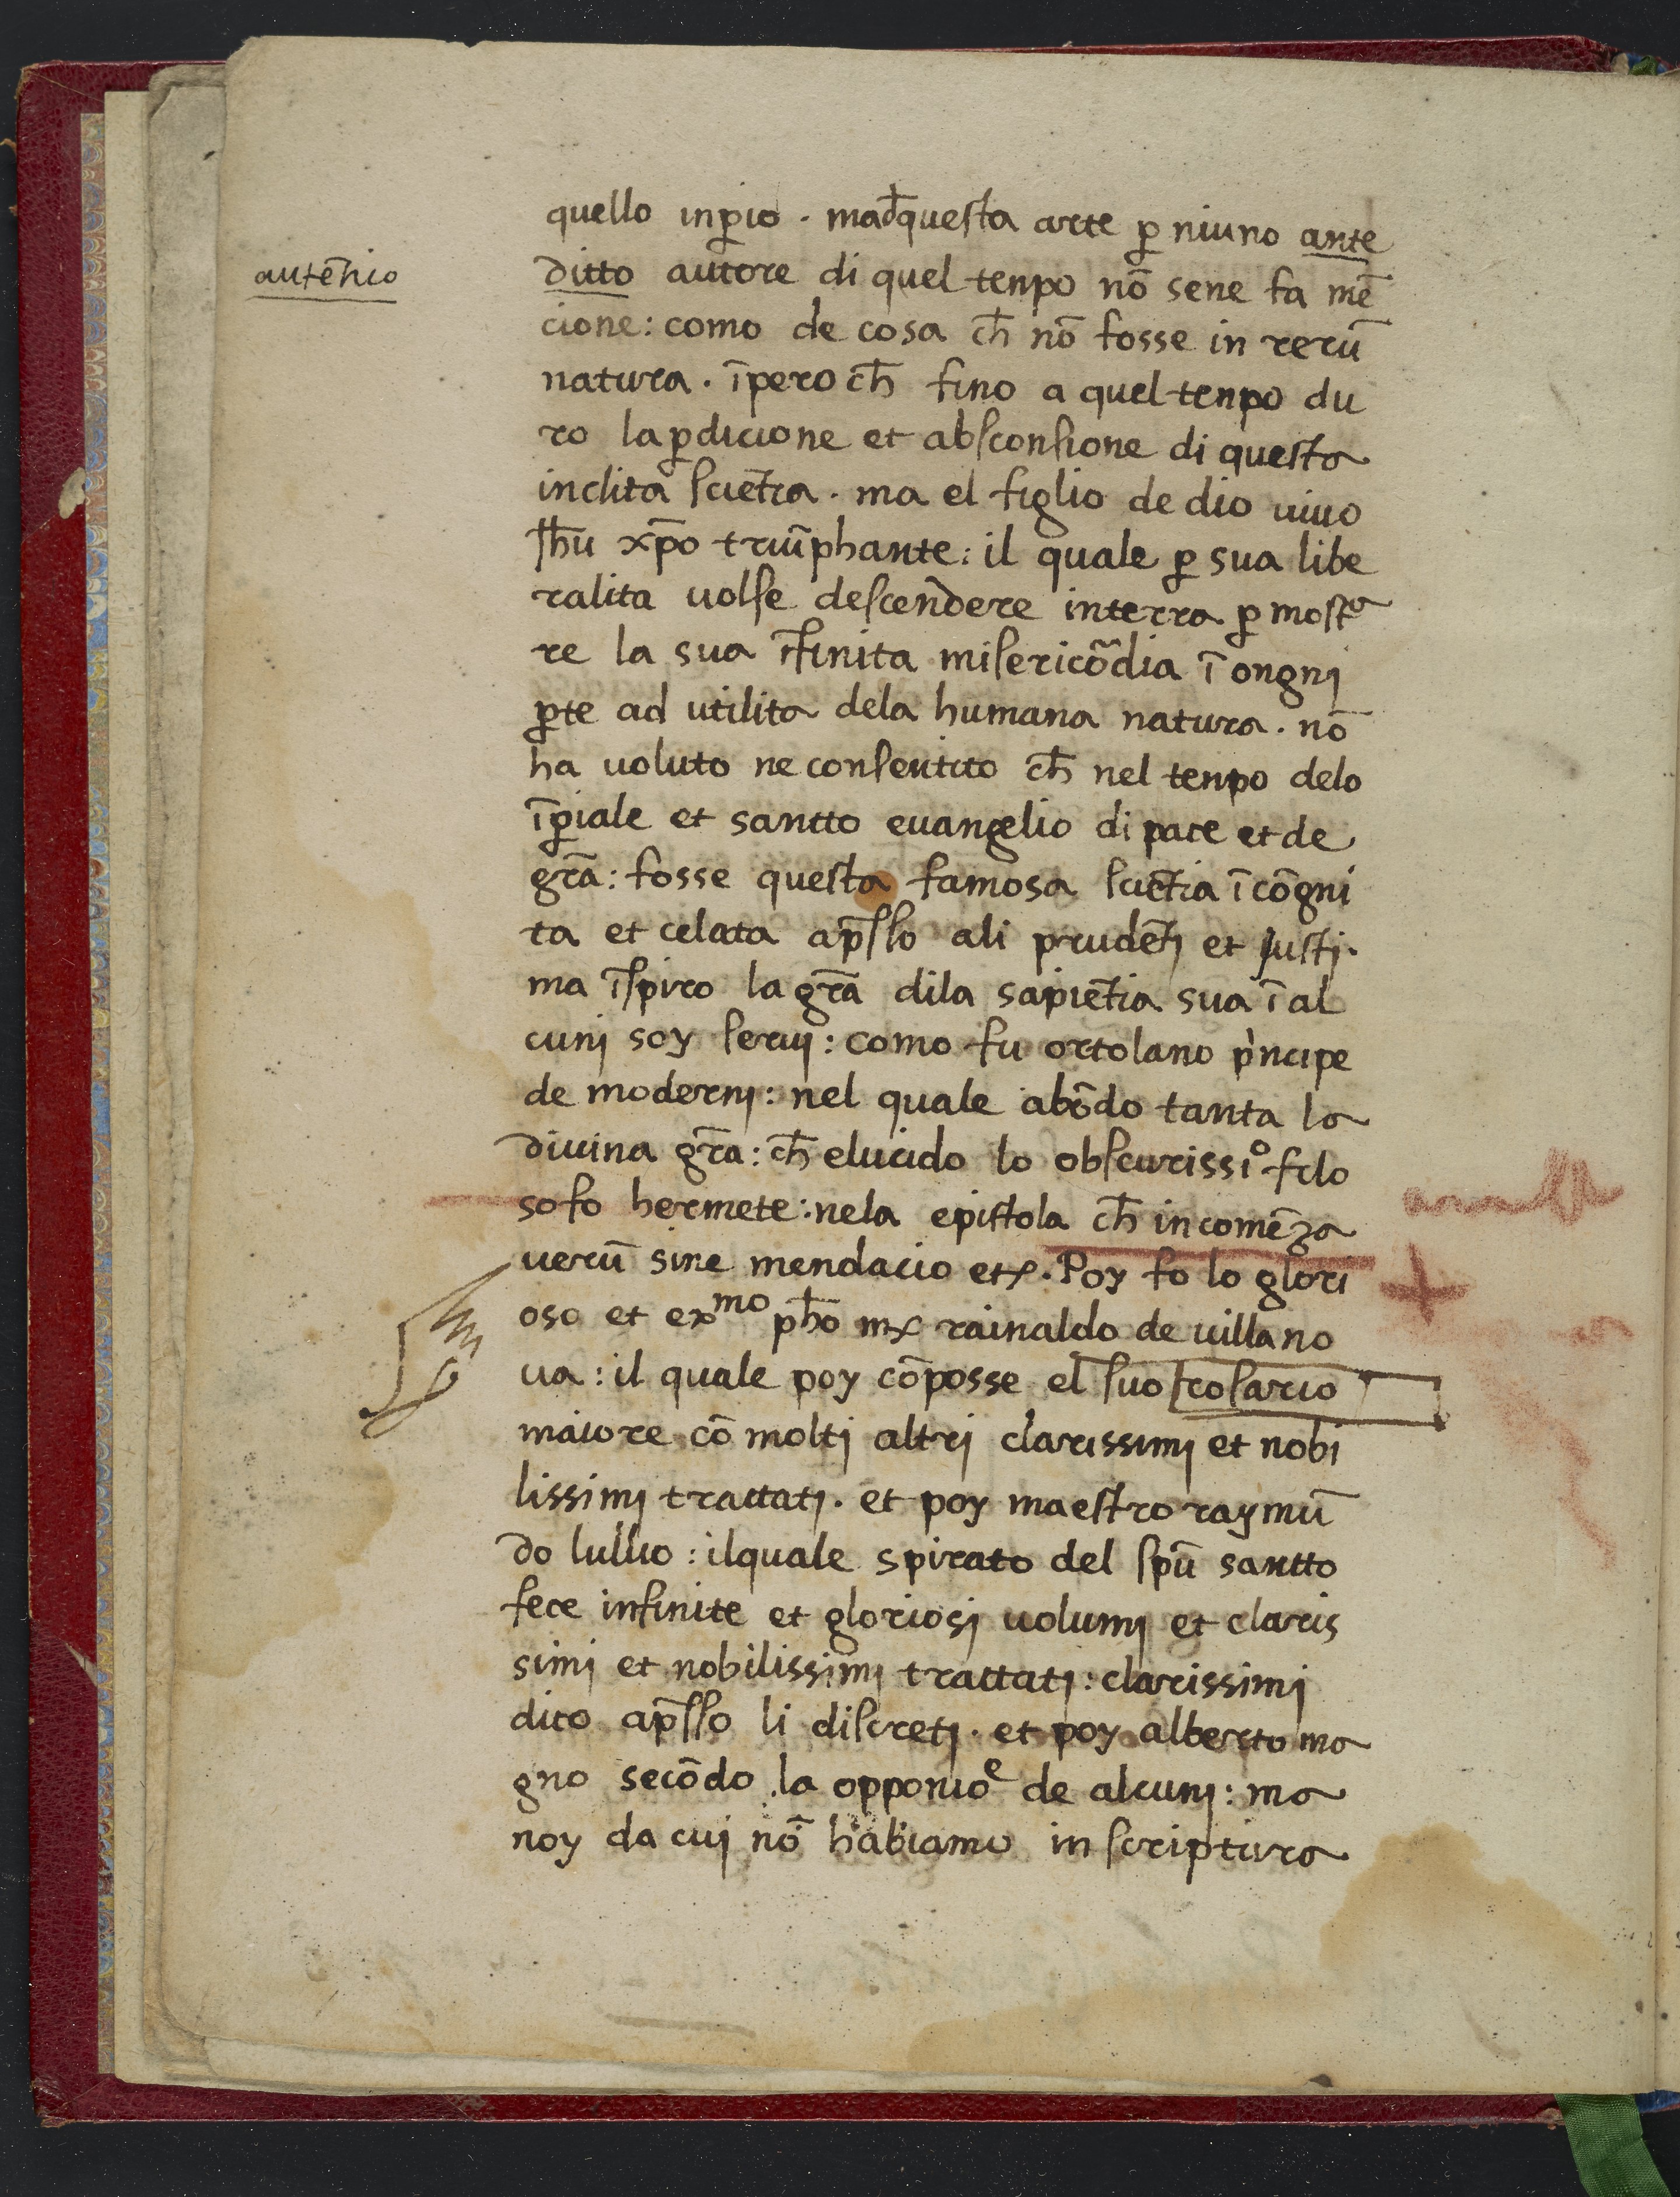 quello inꝑio · mad̄questa arte ꝑ niuno ante
autēnico
ditto autore di quel tenpo nō sene fa mē
cione: como de cosa ch̄ nō fosse in rerū
natura · īpero ch̄ fino a quel tenpo du
ro la ꝑdicione et absconsione di questa
inclita sciēt̄ia · ma el figlio de dio uiuo
Jh̄u xp̄o triūphante: il quale ꝑ sua libe
ralita uolse descendere interra ꝑ mostᵃ
re la sua īfinita misericōdia ī ongnj
ꝑte ad utilita dela humana natura · nō
ha uoluto ne consentito ch̄ nel tenpo delo
īꝑiale et santto euangelio di pace et de
grā: fosse questa famosa sciētia īcōgni
ta et celata ap̄sso ali prudētj et justj·
ma īspiro la grā dila sapiētia sua ī al
cunj soy seruj: como fu ortolano pͥncipe
de modernj: nel quale abōdo tanta la
diuina grā: ch̄ elucido lo obscurissiº filo
sofo hermete: nela epistola ch̄ incomēza
uerū sine mendacio etꝛ. Poy fo lo glori
oso et exᵐᵒ ph̄o mꝛ rainaldo de uillano
ua: il quale poy cōposse el suo rosario
maiore cō moltj altrj clarissimj et nobi
lissimj trattatj · et poy maestro raymū
do lullio: ilquale spirato del spū santto
fece infinite et gloriosj uolumj et claris
simj et nobilissimj trattatj: clarissimj
dico ap̄sso li discretj · et poy alberto ma
gno secōdo la opponioᵉ de alcunj: ma
noy da cuj nō habiamo in scriptura